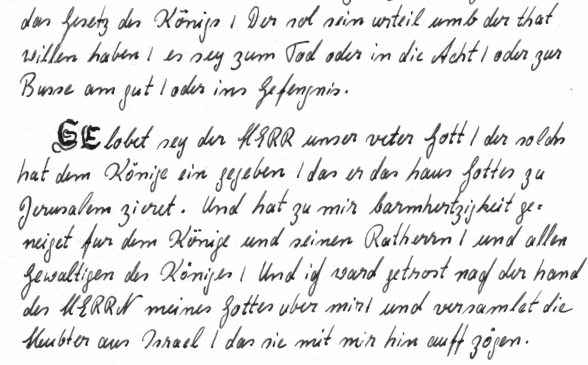 das Gesetz des Königs / Der sol sein urteil umb der that
willen haben / es sey zum Tod oder in die Acht / oder zur
Busse am gut / oder ins Gefengnis.
GElobet sey der HERR unser veter Gott / der solchs
hat dem Könige ein gegeben / das er das haus Gottes zu
Jerusalem zieret. Und hat zu mir barmhertzigkeit ge=
neiget fur dem Könige und seinen Ratherrn / und allen
Gewaltigen des Königes / Und ich ward getrost nach der hand
des HERRN meines Gottes uber mir / und versamlet die
Heubter aus Israel / das sie mit mir hin auff zögen.